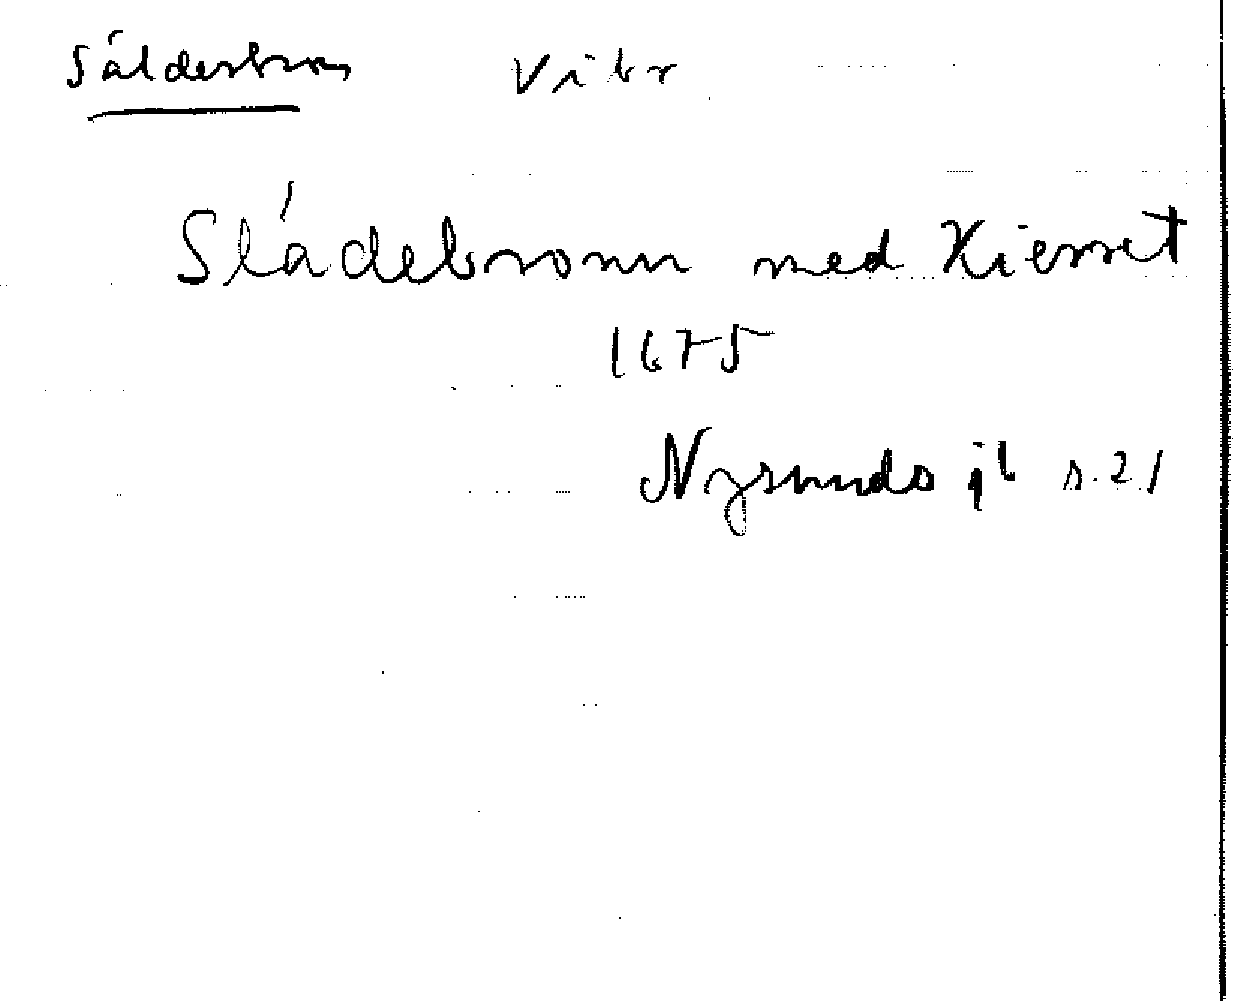 Sålderbron Vibr
Slådebronn med Kierret
1675
Nysunds jb s. 21